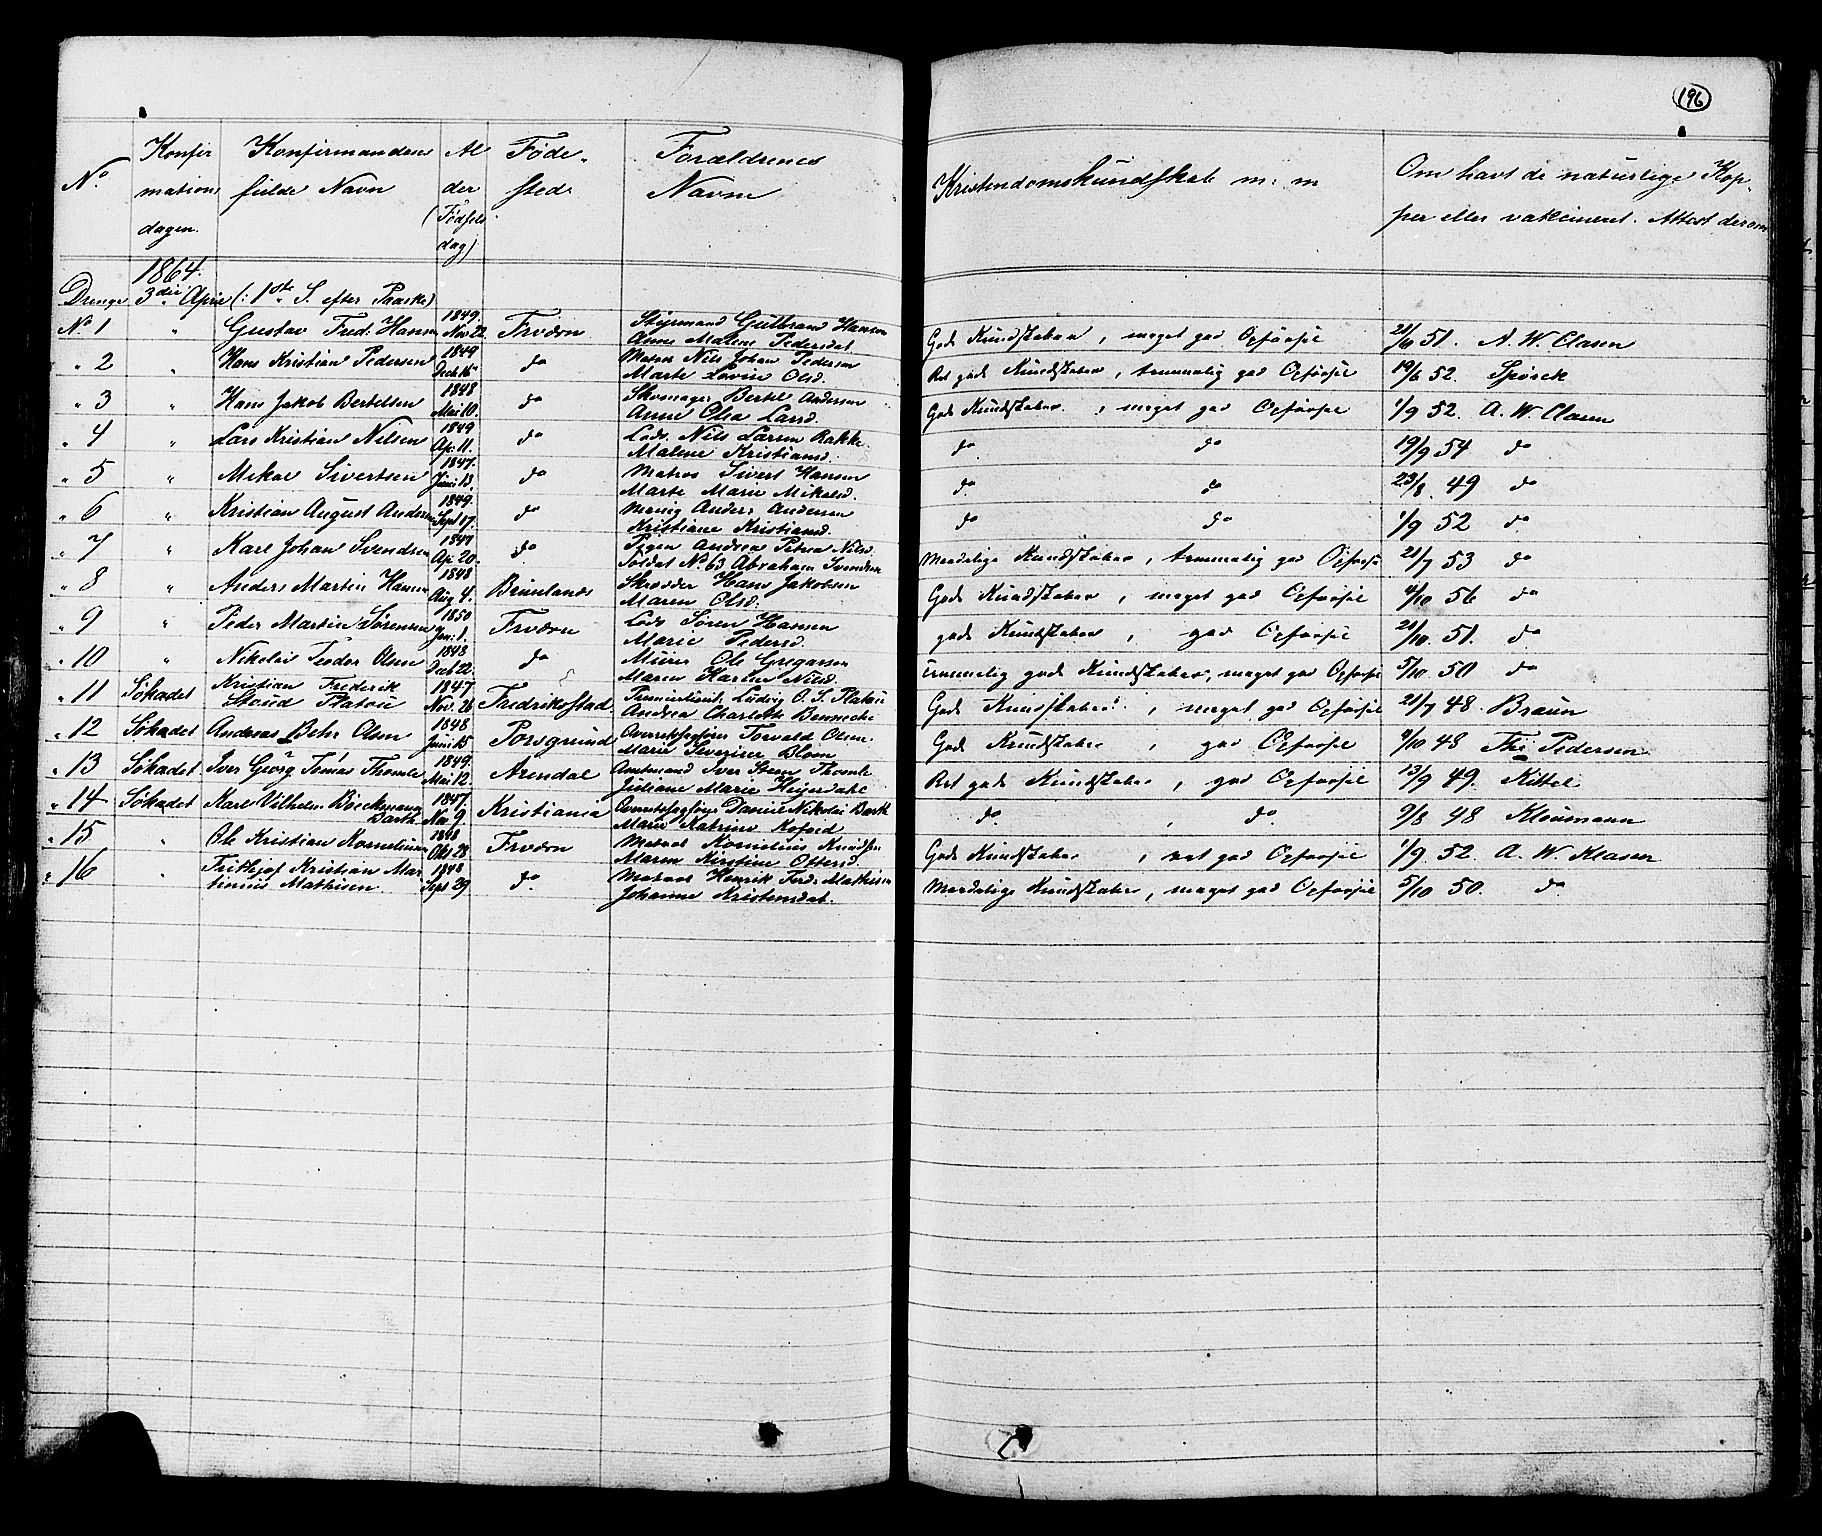 196
No. Konfir Konfirmandens Al Føde- Forældrenes Kristendomskundskab m: m Om havt de naturlige Kop-
mations fulde Navn der sted Navne per eller vakcineret. Attest derom
dagen. (Fødsels
dag)
1864.
Drenge 3die April (: 1ste S. efter Paaske)
No 1 " Gustav Fred: Hansen 1849. Nov 22. Frværn Styrmand Gulbrand Hansen Gode Kundskaber, meget god Opførsel 21/10 51. A. W. Clasen
Anne Malene Pedersdat
" 2 " Hans Kristian Pedersen 1849 Decb 15 do Matros Nils Johan Pedersen Ret gode Kundskaber, temmelig god Opførsel 19/6 52. Spørck
Marte Lovise Olsd.
" 3 " Hans Jakob Bertelsen 1848 Mai 10. do Skomager Bertel Andersen Gode Kundskaber, meget god Opførsel 1/9 52. A. W. Clasen
Anne Olea Larsd.
" 4 " Lars Kristian Nilsen 1849 Apr. 11. do Lods. Nils Larsen Rakke. do do 19/9 54 do
Malene Kristiansd.
" 5 " Mikal Sivertsen 1847. Juni 13. do Matros Sivert Hansen do do 23/8. 49 do
Marte Marie Mikalsd.
" 6 " Kristian August Andersen 1849. Sept 17. do Anders Andersen do do 1/9 52 do
Kristiane Kristiansd.
" 7 " Karl Johan Svendsen 1847 Ap. 20. do. Pigen Andrea Petrea Nilsd. Maadelige Kundskaber, temmelig god Opførsel 21/7 53 do
Soldat No 63 Abraham Svendsen
" 8 " Anders Martin Hansen 1848 Aug 4. Brunlanæs Skrædder Hans Jakobsen Gode Kundskaber, meget god Opførsel 4/10 56 do
Maren Olsd.
" 9 " Peder Martin Sørensen 1850 Jan: 1. Frværn Lods Søren Hansen gode Kundskaber, god Opførsel 21/10 51. do
Marie Pedersd.
" 10 " Nikolai Teodor Olsen 1848 Decb 22. do Murer Ole Gregersen temmelig gode Kundskaber, meget god Opførsel 5/10 50 do
Maren Karine Nilsd.
" 11 Søkadet Kristian Frederik 1847 Nov. 26 Fredrikstad Ludvig O. S. Platou Gode Kundskaber, meget god Opførsel 21/7 48 Braun
Stoud Platou Andrea Charlotte Bennecke
" 12 Søkadet Andreas Behr Olsen 1848 Juni 15 Porsgrund Overretssagfører Torvald Olsen. Gode Kundskaber, god Opførsel 4/10 48 Thr Pedersen
Marie Severine Blom
" 13 Søkadet Iver Georg Tomas Thomle 1849. Mai 12. Arendal Amtmand Iver Steen Thomle Ret gode Kundskaber, god Opførsel 13/9 49. Kittel
Juliane Marie Heyerdahl
" 14 Søkadet Karl Vilhelm Böeckmann 1847. Nov 9. Kristiania Overretssagfører Daniel Nikolai Barth do. , do. 9/8 48 Kloumann
Barth Marie Katrine Kofoed
" 15 " Ole Kristian Kornelius 1848 Okt 28 Frværn Matros Kornelius Knudsen Gode Kundskaber, ret god Opførsel 1/9 52. A. W. Klasen
Maren Kirstine Ottersd.
" 16 " Frithjof Kristian Mar 1848 Sept 29 do. Matros Henrik Ferd: Mathisen Maadelige Kundskaber, meget god Opførsel 5/10 50. do
tinius Mathisen Johanne Kristensdat.